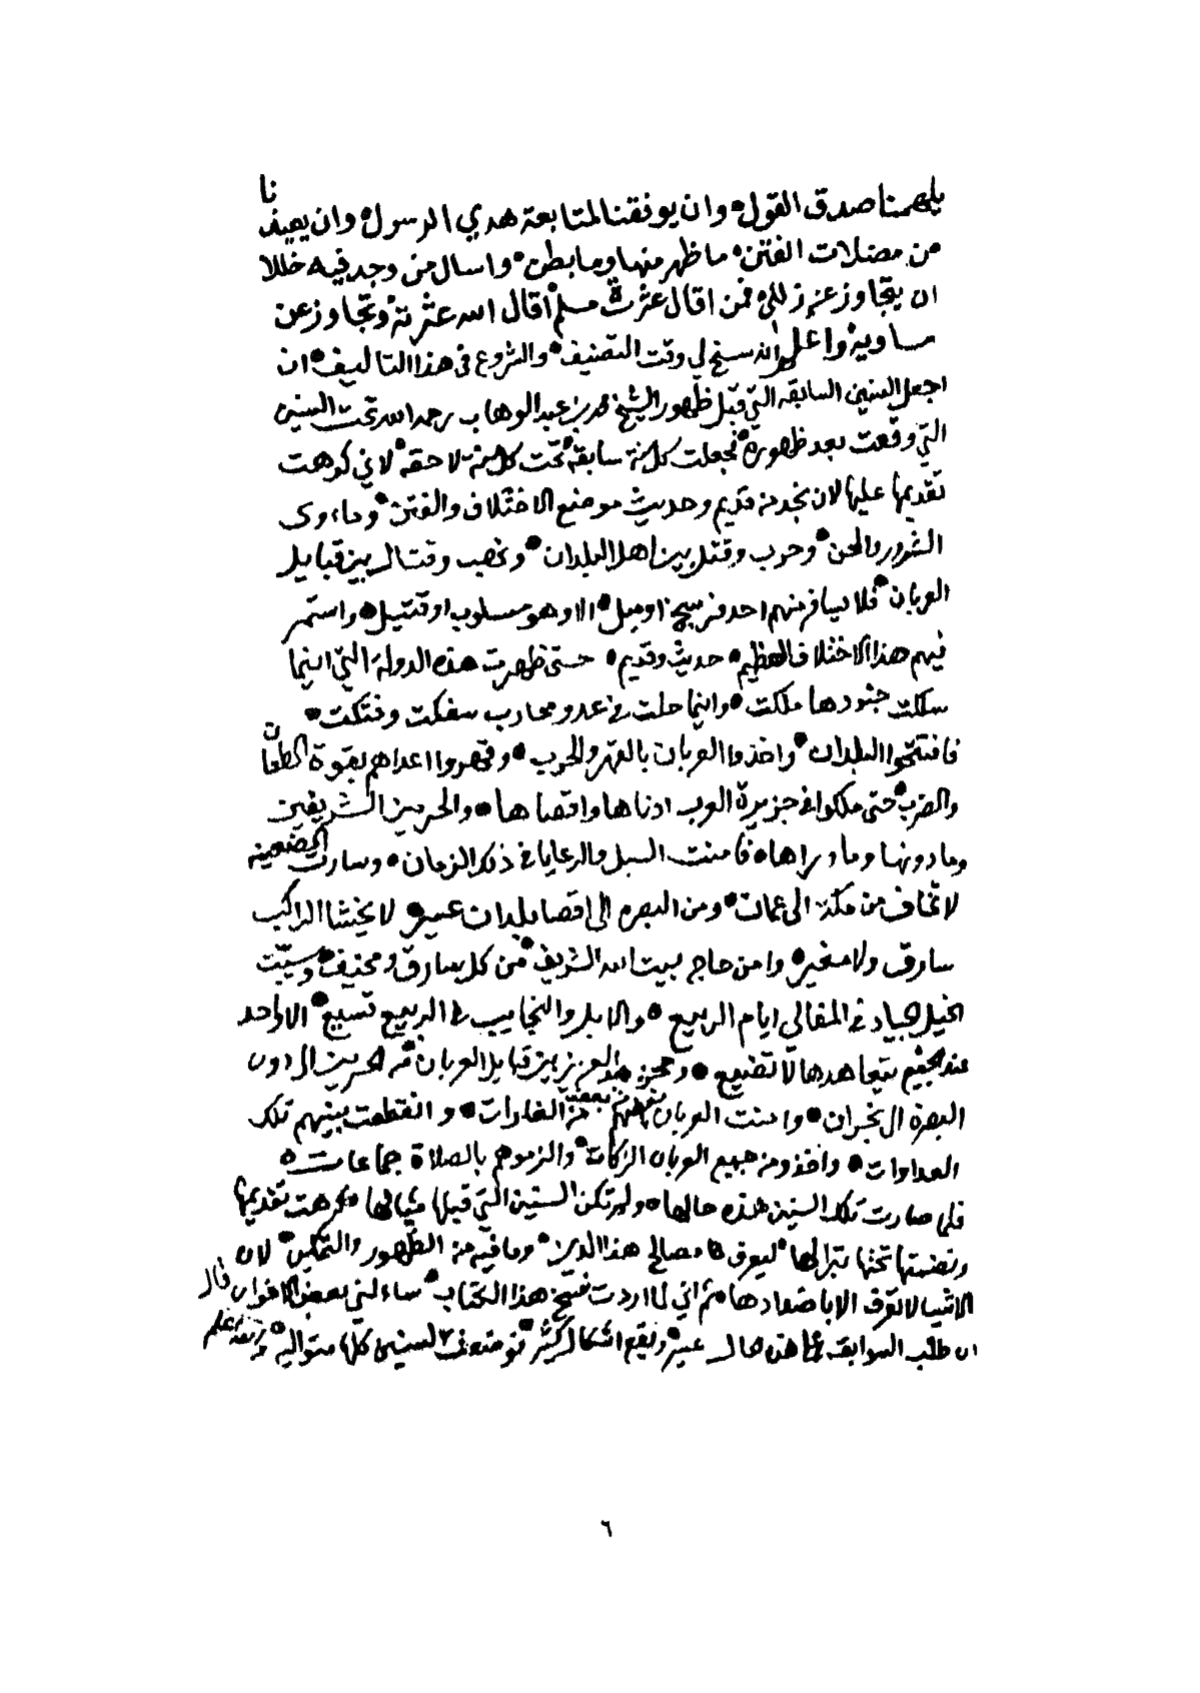 يلهمنا صدق القول وان يوفقنا لمتابعة هدي الرسول وان يعيذنا
من مضلات الفتن ما ظهر منها وما بطن واسال من وجد فيه خللا
ان يتجاوز عن زللي فمن اقال عثرت مسلم اقال الله عثرته وتجاوز عن
مساويه واعلم انه سنح لي وقت التصنيف والشروع في هذا التاليف ان
اجعل السنين السابقه التي قبل ظهور الشيخ محمد بن عبد الوهاب رحمه الله تحت السنين
التي وقعت بعد ظهوره فجعلت كل سنة سابقه تحت كل سنة لاحقه لاني كرهت
تقديمها عليها لان نجد من قديم وحديث موضع الاختلاف والفتن وماوى
الشرور والمحن وحرب وقتل بين اهل البلدان ونهب وقتال بين قبايل
العربان فلا يسافر منهم احد فرسخ او ميل الا وهو مسلوب او قتيل واستمر
فيهم هذا الاختلاف العظيم حديث وقديم حتى ظهرت هذه الدولة التي اينما
سلكت جنودها ملكت واينما حلت في عدو محارب سفكت وفتكت
فافتتحوا البلدان واخذوا العربان بالقهر والحرب وقهروا اعداهم بقوة الطعان
والضرب حتى ملكوا في جزيرة العرب ادناها واقصاها والحرمين الشريفين
وما دونها وما وراها فامنت السبل والرعايا في ذلك الزمان وسارت الضعينه
لا تخاف من مكة الى عمان ومن البصره الى اقصا بلدان عسير لا يخشا الراكب
سارق ولا مغير وامن حاج بيت الله الشريف من كل سارق ومخيف وسيبت
الخيل الجياد في المفالي ايام الربيع والابل والنجايب في الربيع تسيع الا واحد
عندهم يتعاهدها لا تضيع العزيز بين قبايل العربان من الحرمين الى دون
البصرة الى نجران وامنت العربان بعضهم من بعض من الغارات وانقطعت بينهم تلك
العداوات واخذو من جميع العربان الزكاة والزموهم بالصلاة جماعات
فلما صارت تلك السنين هذه حالها ولم تكن السنين التي قبلها مثالها كرهت تقديمها
وتضمنتها تحتها ليعرف مصالح هذا الدين وما فيه من الظهور والتمكين لان
الاشيا لا تعرف الا باضدادها ثم اني لما اردت نسخ هذا الكتاب ساءلني بعض الاخوان قال
ان طلب السوابق على هذه حال عسير ويقع اشكال كثير السنين كلها متواليه
٦